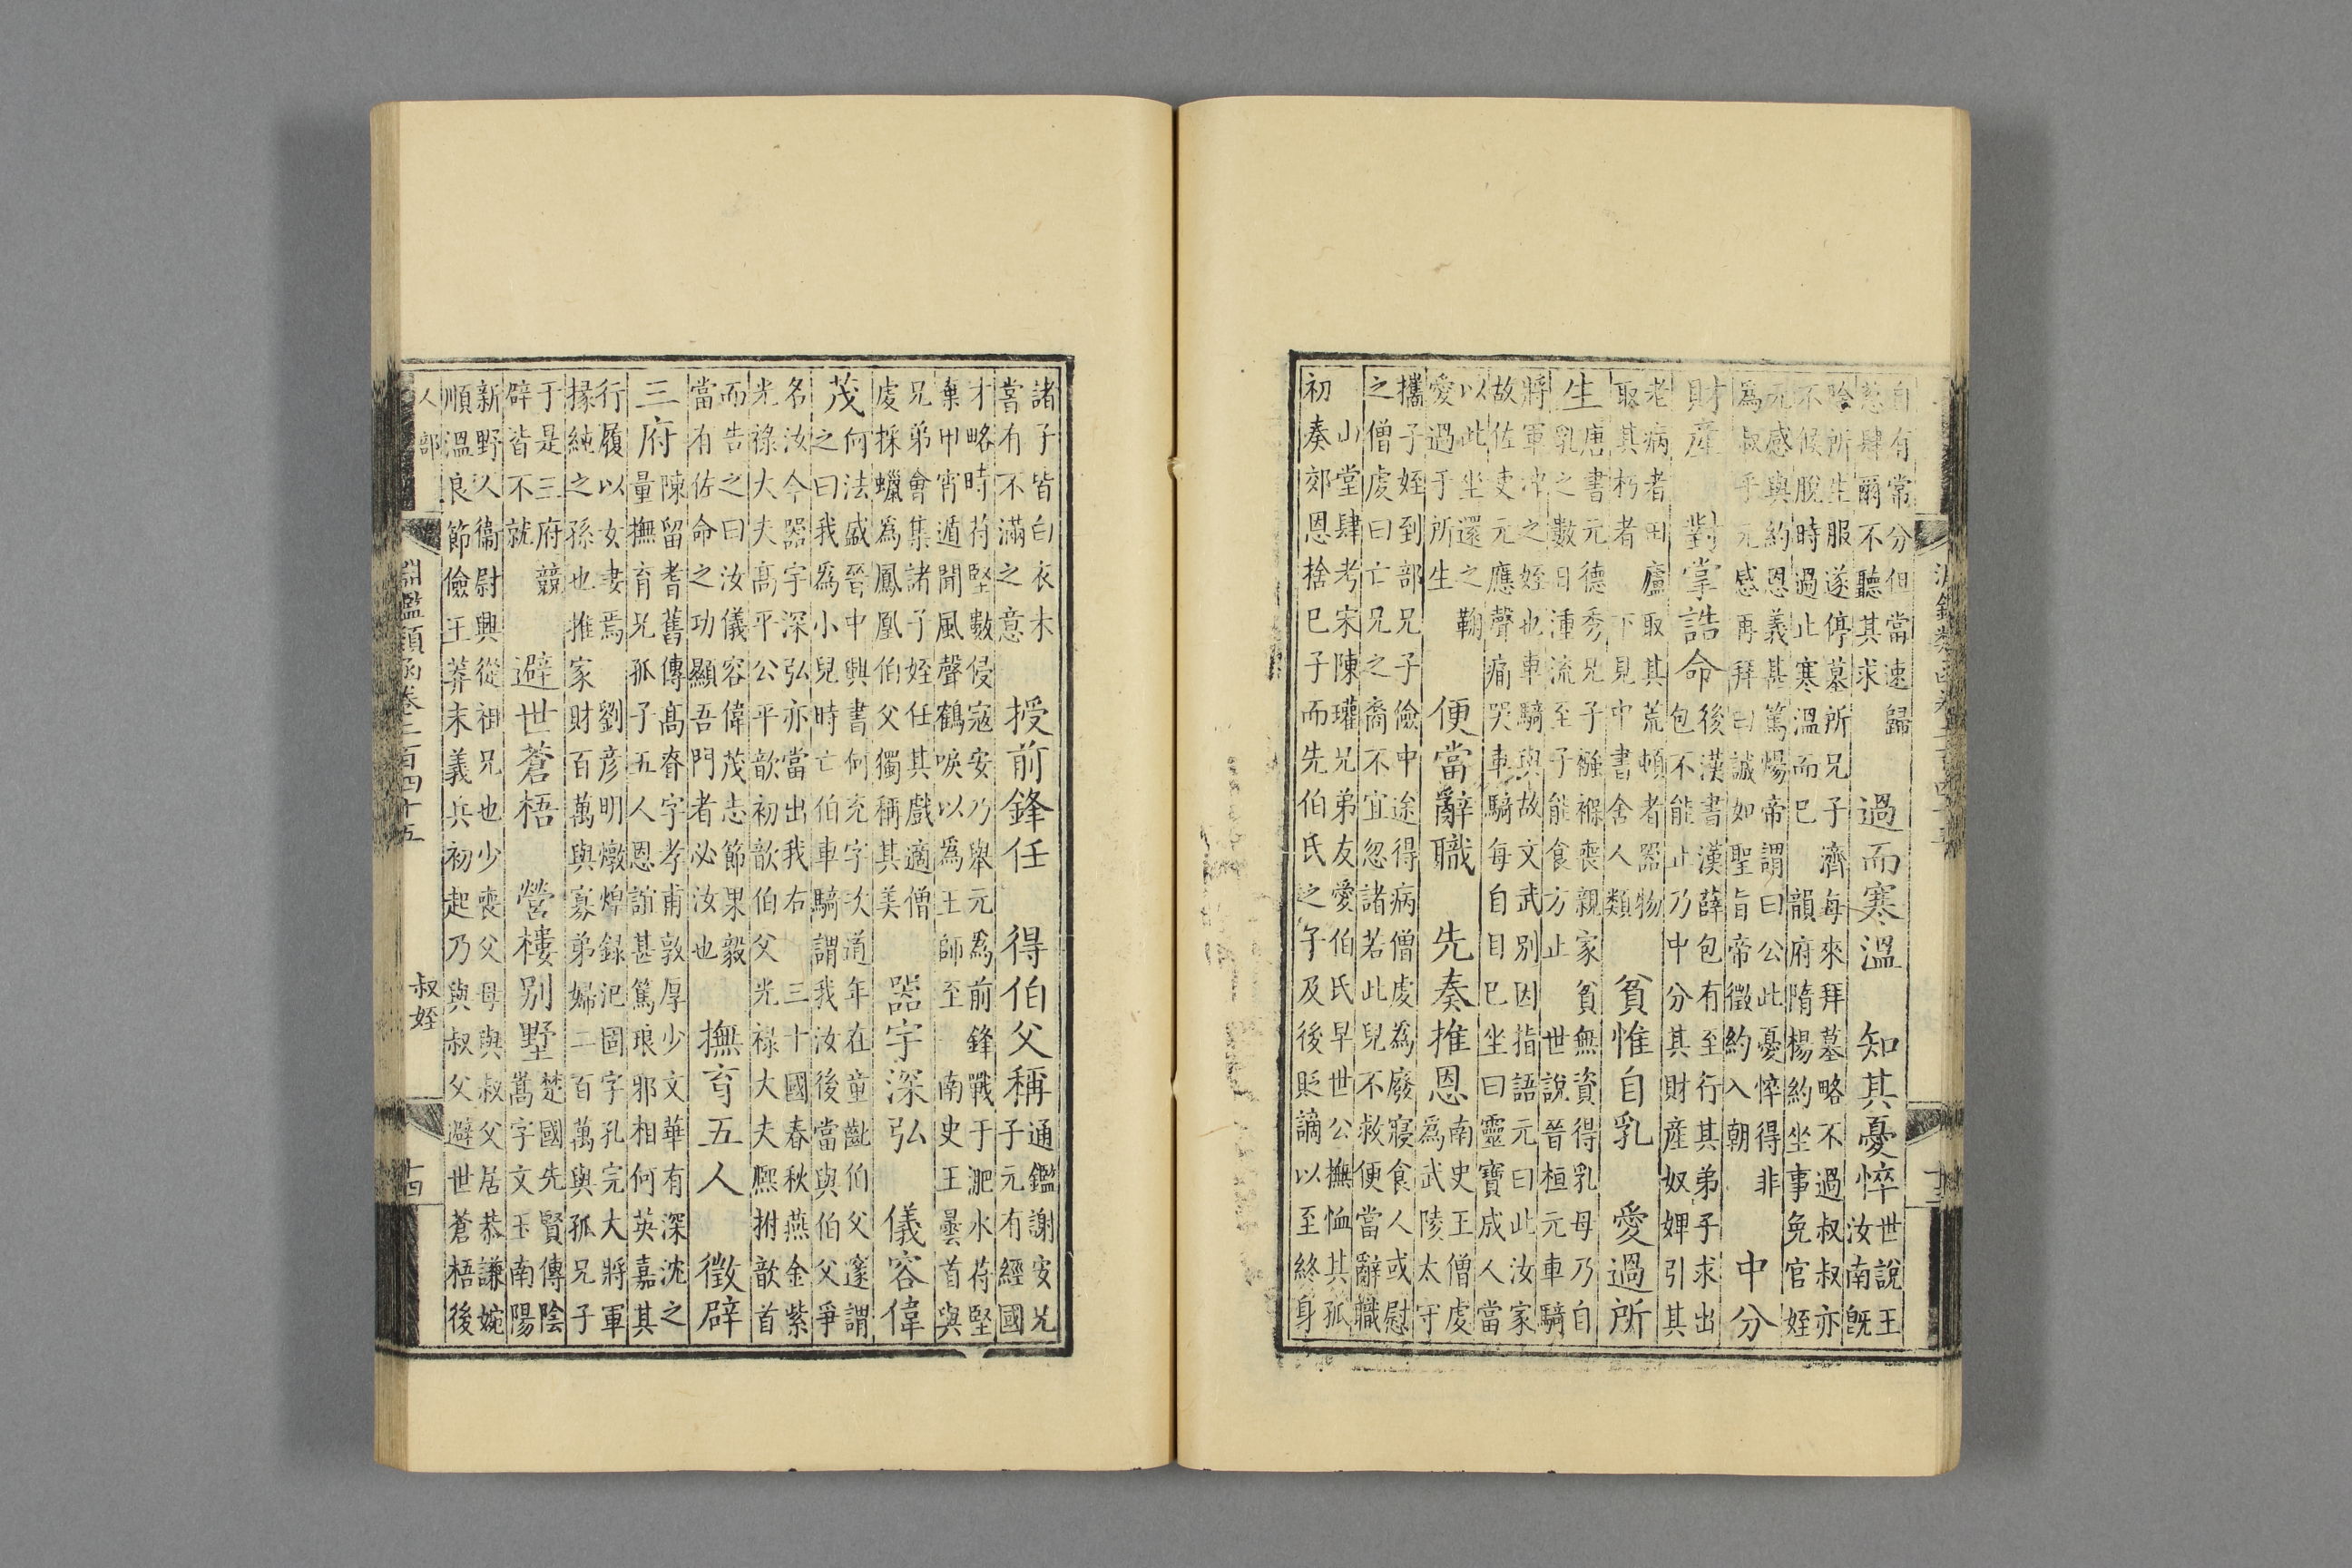 自有常分但當速歸
慈肆爾不聽其求
過而寒溫　知其憂悴
世說王
汝南既
除所生服遂停墓所兄子濟每來拜墓略不過叔叔亦
不候脫時過止寒溫而已　韻府隋楊約坐事免官姪
元感與約恩義甚篤煬帝謂曰公此憂悴得非
為叔乎元感再拜曰誠如聖旨帝徵約入朝
中分
財產　對掌誥命
後漢書漢薛包有至行其弟子求出
包不能止乃中分其財產奴婢引其
老病者田廬取其荒頓者器物
取其朽者　下見中書舍人類
貧惟自乳　愛過所
生
唐書元德秀兄子襁褓喪親家貧無資得乳母乃自
乳之數日湩流至子能食方止　世說晉桓元車騎
將軍沖之姪也車騎與故文武別因指語元曰此汝家
故佐吏元應聲痛哭車騎每自目已坐曰靈寶成人當
以此坐還之　鞠
愛過于所生
便當辭職　先奏推恩
南史王僧虔
為武陵太守
攜子姪到郡兄子儉中途得病僧虔為廢寢食人或慰
之僧虔曰亡兄之裔不宜忽諸若此兒不救便當辭職
山堂肆考宋陳瓘兄弟友愛伯氏早世公撫恤其孤
初奏郊恩捨已子而先伯氏之子及後貶謫以至終身
諸子皆白衣木
嘗有不滿之意
授前鋒任　得伯父稱
通鑑謝安兄
子元有經國
才略時苻堅數侵寇安乃舉元為前鋒戰于淝水苻堅
棄甲宵遁聞風聲鶴唳以為王師至　南史王曇首與
兄弟會集諸子姪任其戲適僧
虔採蠟為鳳凰伯父獨稱其美
器宇深弘　儀容偉
茂
何法盛晉中興書何充字次道年在童齔伯父邃謂
之曰我為小兒時亡伯車騎謂我汝後當與伯父爭
名汝今器宇深弘亦當出我右　三十國春秋燕金紫
光祿大夫高平公平歆初歆伯父光祿大夫熙拊歆首
而告之曰汝儀容偉茂志節果毅
當有佐命之功顯吾門者必汝也
撫育五人　徵辟
三府
陳留耆舊傳高眘字孝甫敦厚少文華有深沈之
量撫育兄孤子五人恩誼甚篤琅邪相何英嘉其
行履以女妻焉　劉彥明燉煌錄汜固字孔完大將軍
掾純之孫也推家財百萬與寡弟婦二百萬與孤兄子
于是三府競
辟皆不就
避世蒼梧　營樓別墅
楚國先賢傳陰
嵩字文玉南陽
新野人衛尉興從祖兄也少喪父母與叔父居恭謙婉
順溫良節儉王莽末義兵初起乃與叔父避世蒼梧後
人部　淵鑑類函卷二百四十五　叔姪　十四